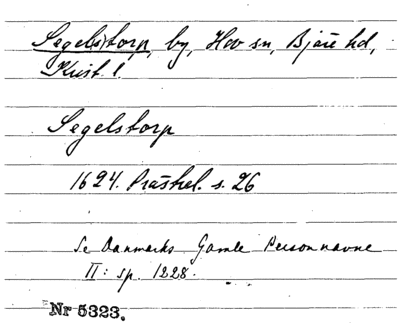 Segelstorp, by, Hov sn, Bjäre hd,
Krist. l.
Segelstorp
1624. Prästrel. s. 26
Se Danmarks Gamle Personnavne
II: sp. 1228.
Nr 5323.